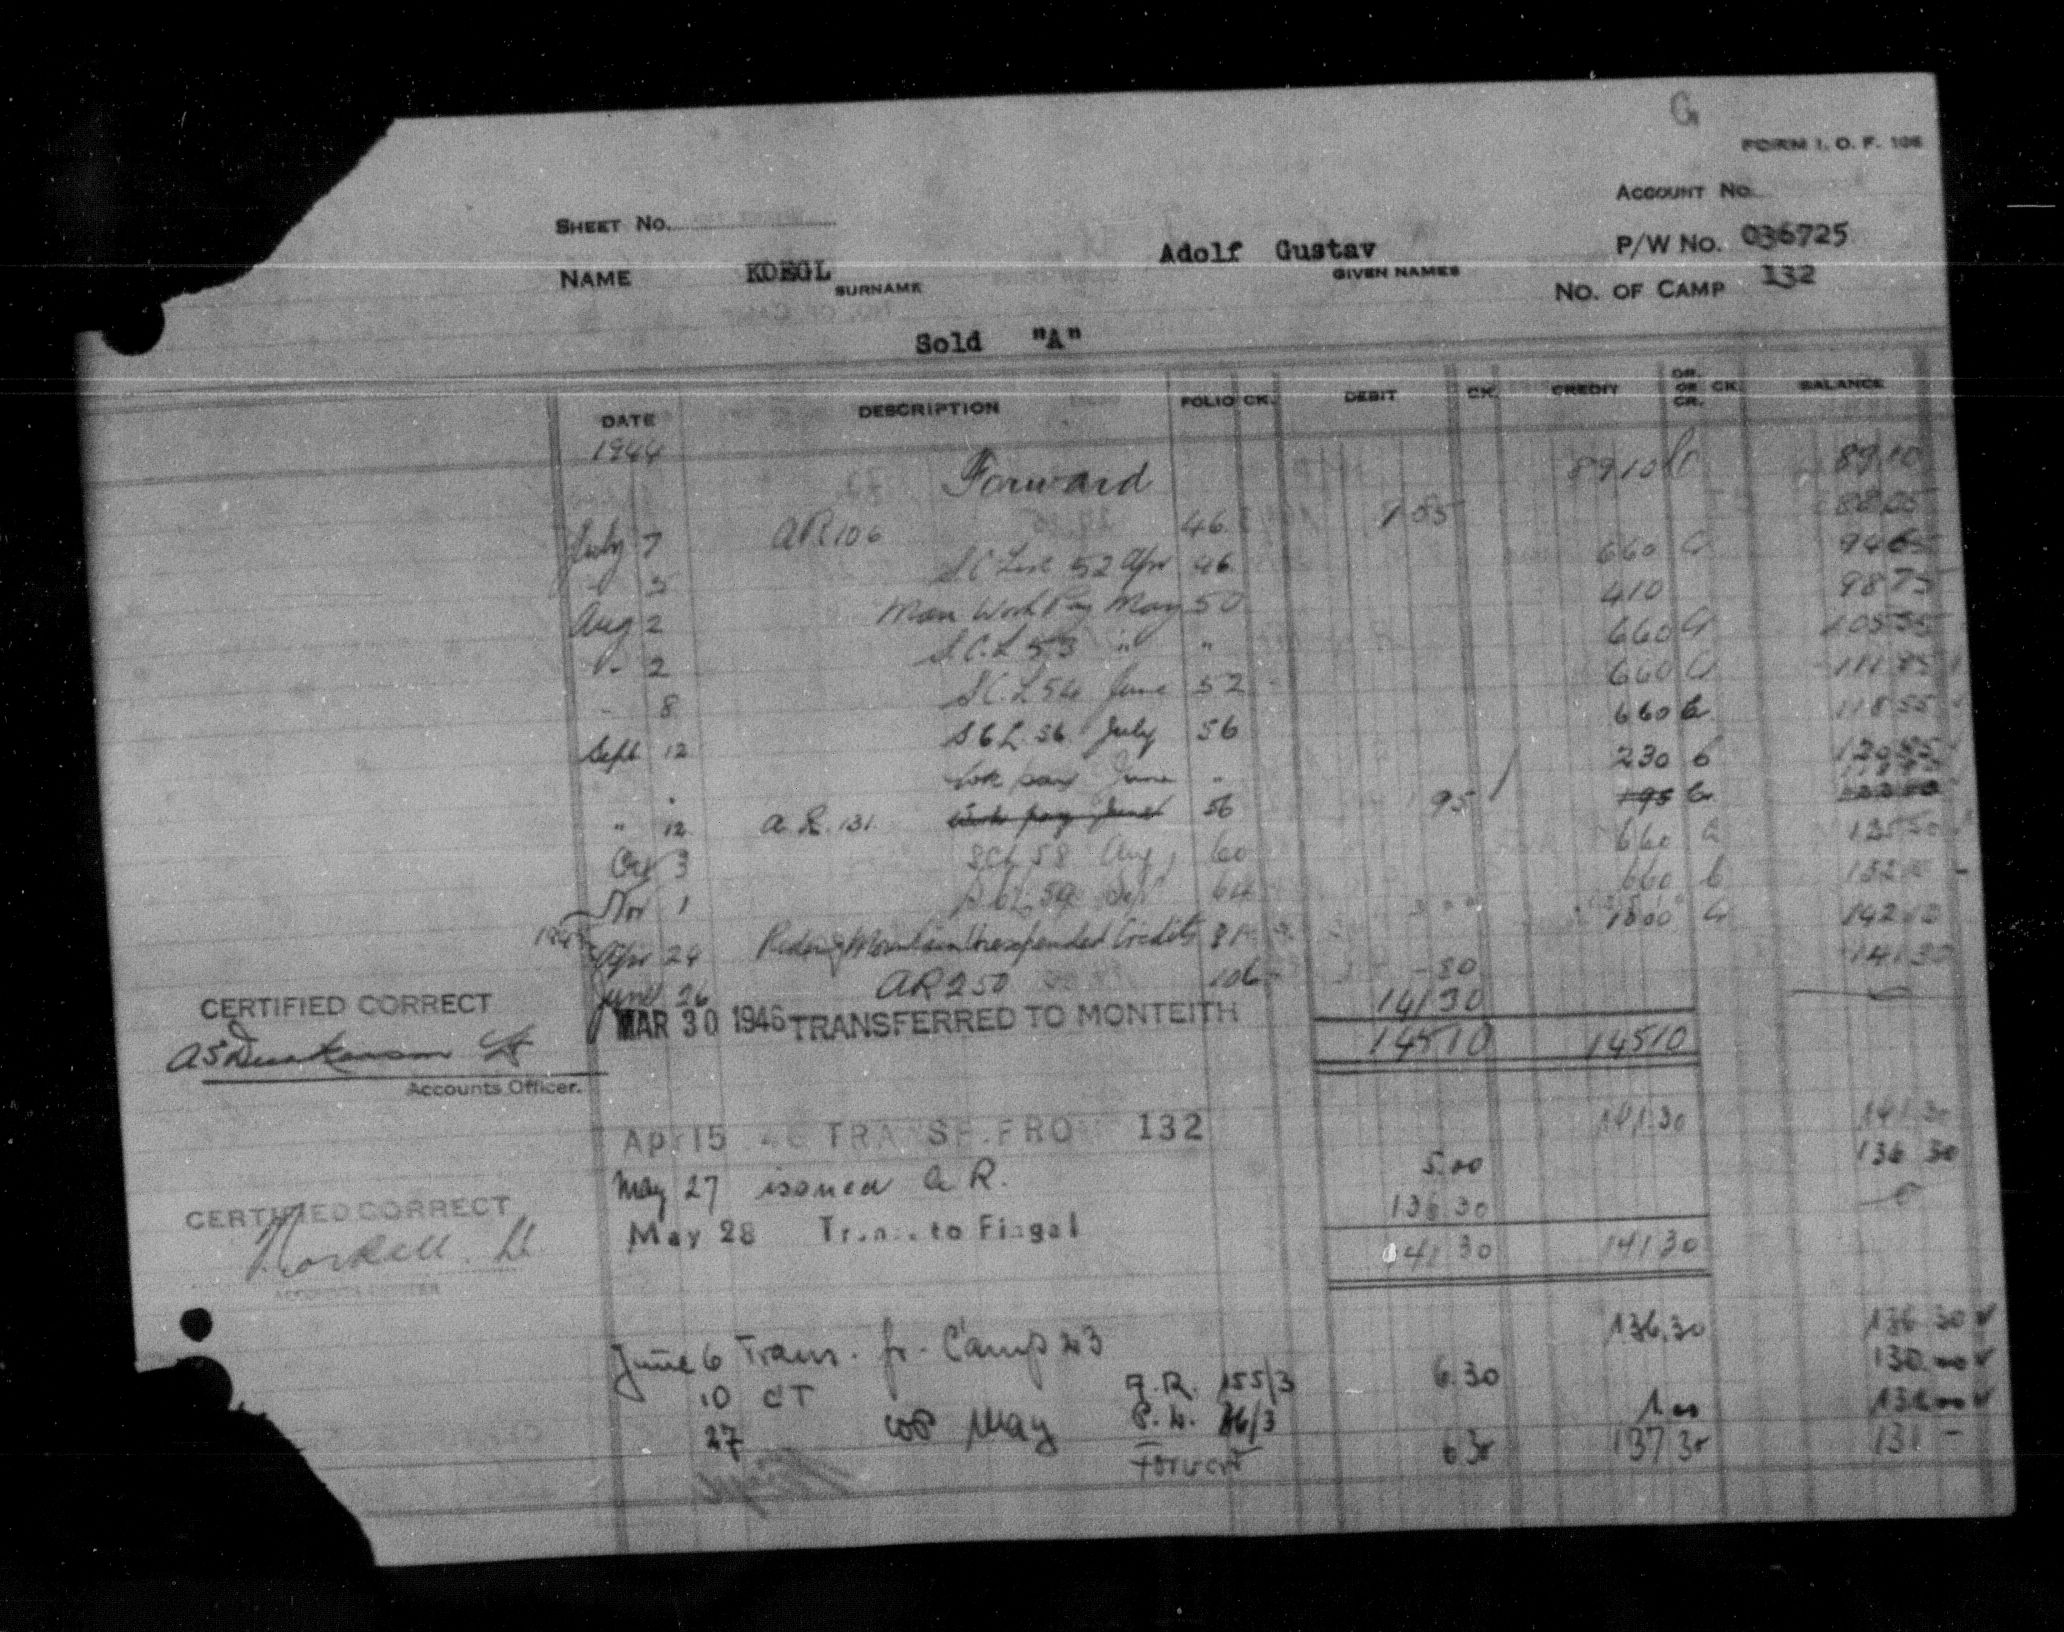 G
FORM I. O. F. 106
ACCOUNT NO.
SHEET NO.
P/W NO. 036725
NAME KOEGL SURNAME Adolf Gustav GIVEN NAMES
NO. OF CAMP 132
Sold "A"
DATE DESCRIPTION FOLIO CK. DEBIT CK. CREDIT DR. OR CR. CK. BALANCE
1944 Forward 89 10 Cr 89 10
July 7 AR 106 46 1 05 88 05
" 5 SC List 52 Apr 46 6 60 Cr 94 65
Aug 2 Man Work Pay May 50 4 10 98 75
" 2 S.C.L 53 " " 6 60 Cr 105 35
- 8 S.C.L 54 June 52 6 60 Cr 111 95
Sept 12 S C L 56 July 56 6 60 Cr 118 55
Work pay June " 2 30 Cr 120 85
" 12 A.R. 131 Work pay June 56 95 195 Cr
Oct 3 SCL 58 Aug 60 6 60 Cr
Nov 1 SCL 59 Sep 64 6 60 Cr 132 10
1945 Apr 24 Riding Mountain Unexpended Credits 81 10 00 Cr 142 10
June 26 AR 250 106 - 80 141 30
CERTIFIED CORRECT
MAR 30 1946 TRANSFERRED TO MONTEITH 141 30
145 10 145 10
Accounts Officer.
Apr 15 46 TRANSF. FROM 132 141 30 141 30
May 27 issued A R. 5.00 136 30
CERTIFIED CORRECT
May 28 Trans. to Fingal 136 30
141 30 141 30
ACCOUNTS OFFICER
June 6 Trans. fr. Camp 23 136.30 136 30
10 CT A.R. 155/3 6.30 130.00
27 WP May P.L. 46/3 1.00 131.00
Forward 6 30 137 30 131 -